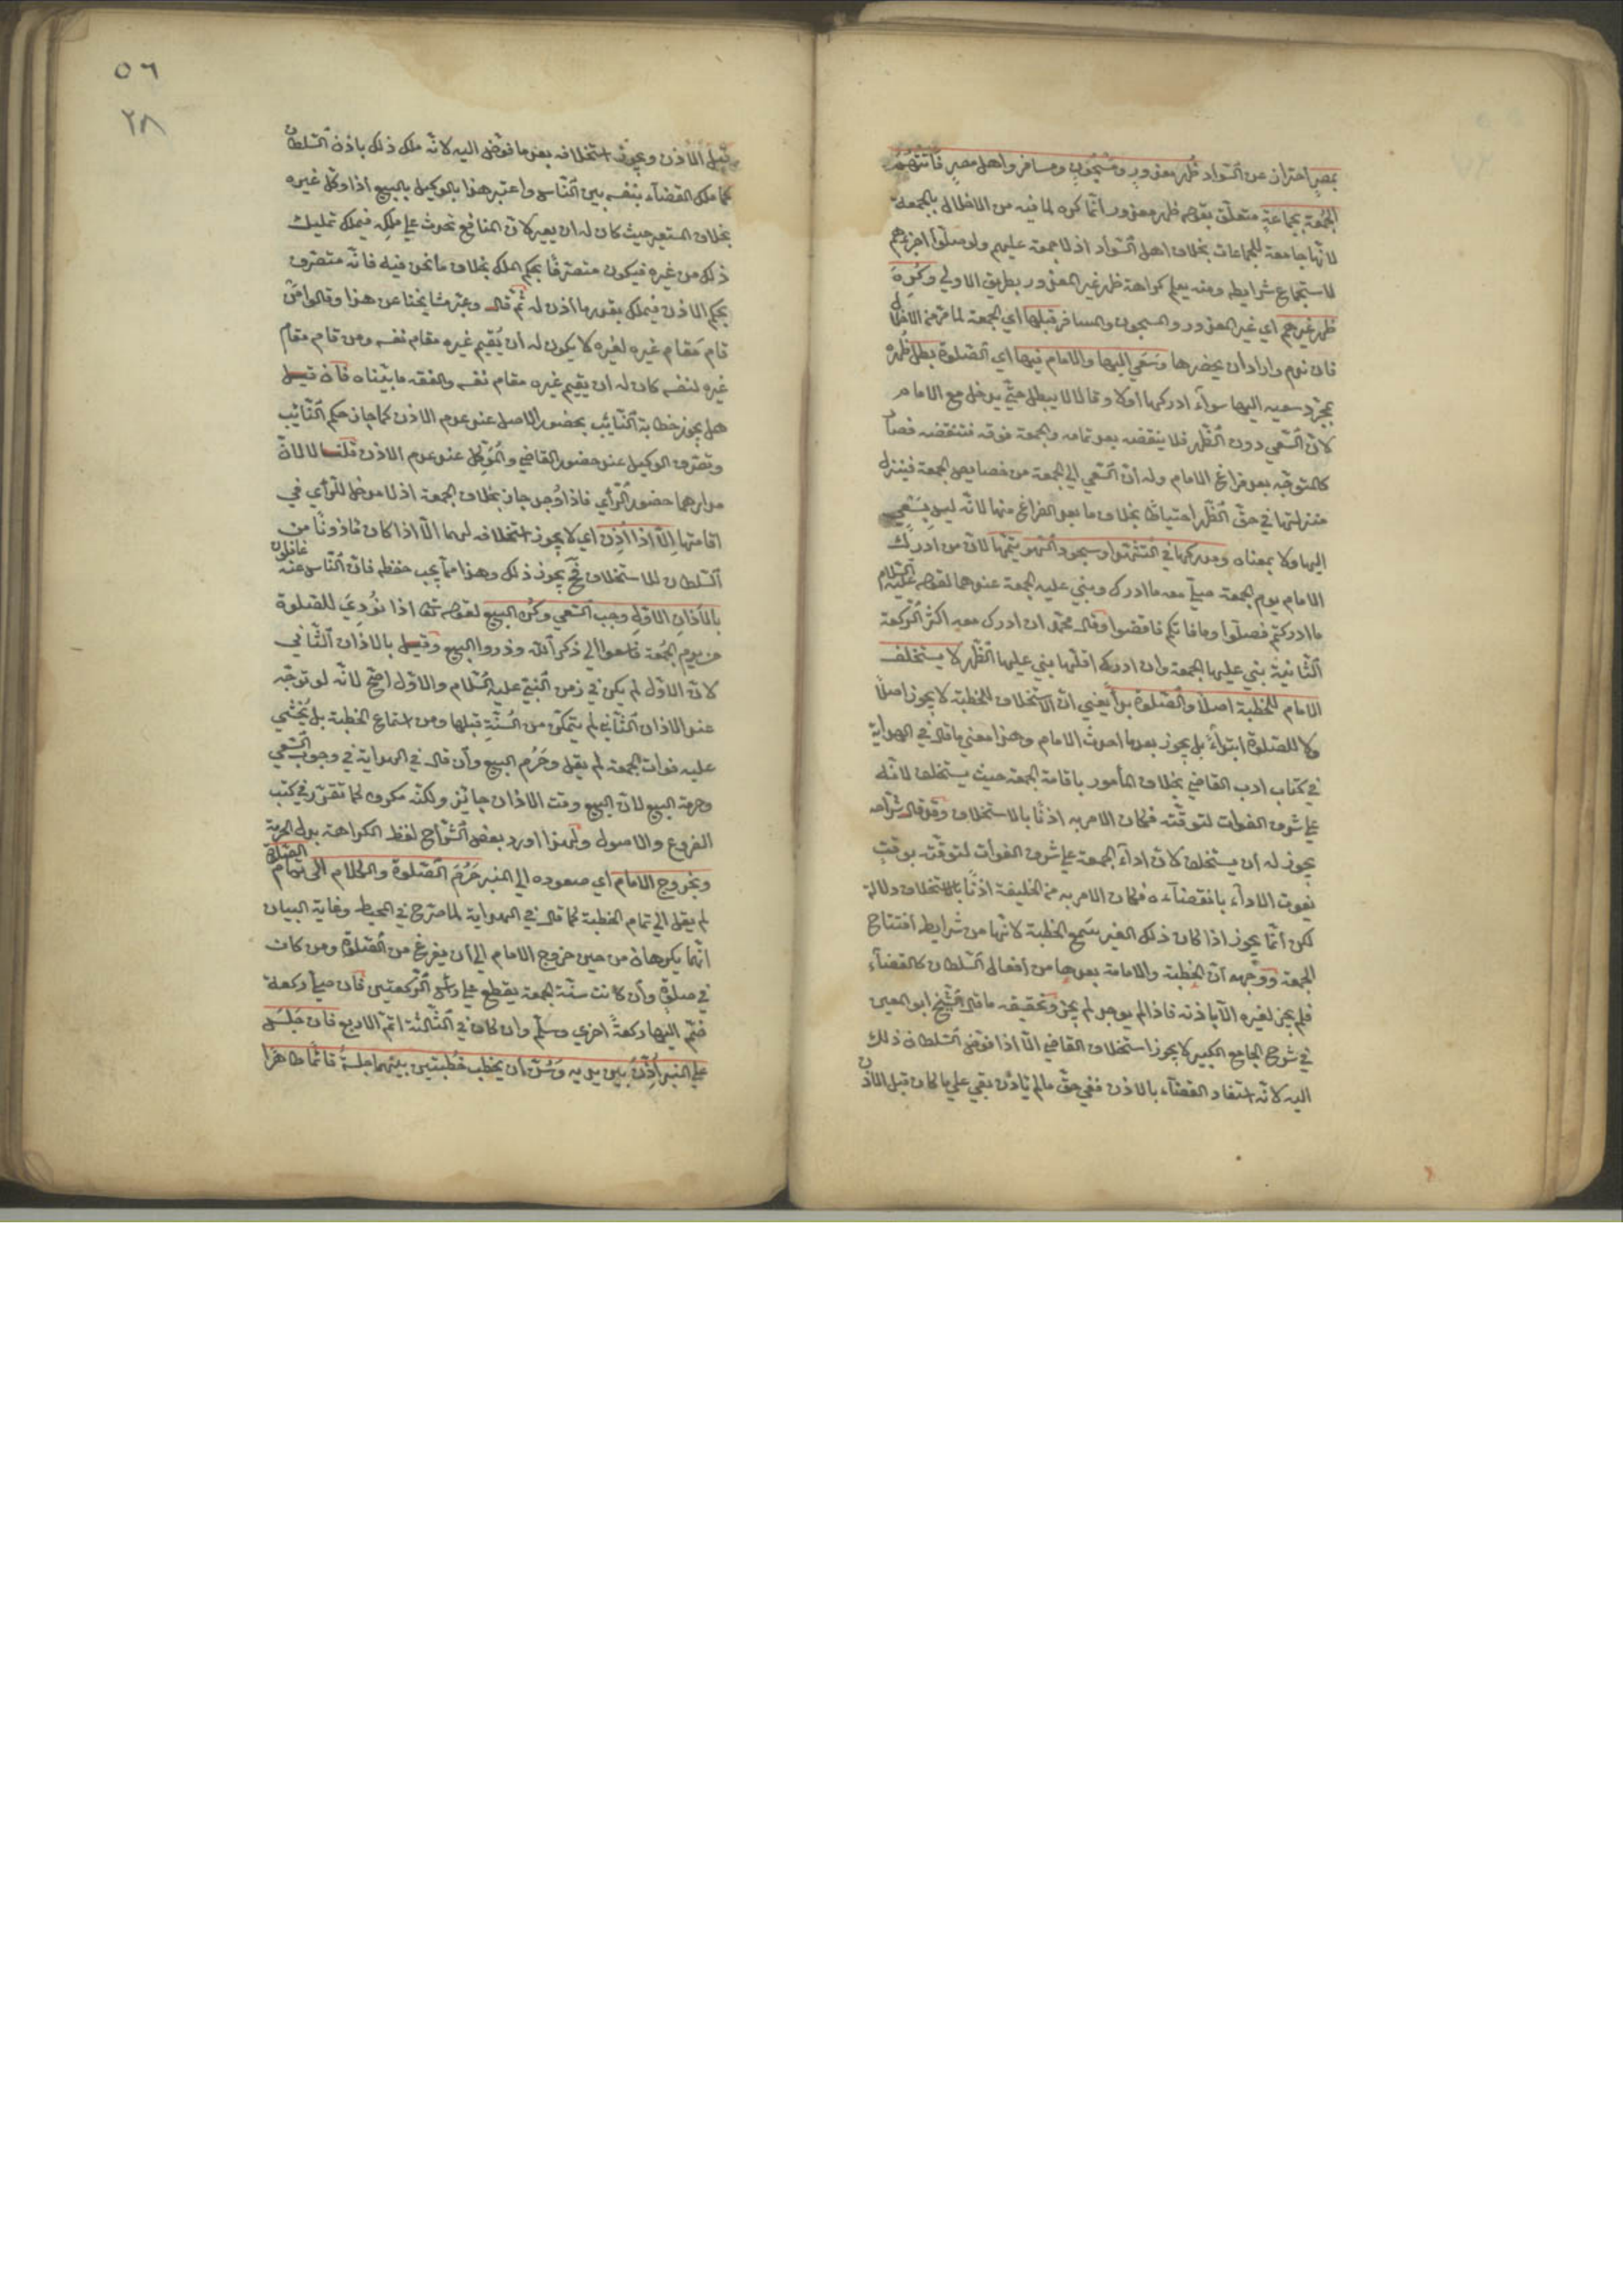 بمصر احتراز عن السواد ظهر معذور ومسجون ومسافر واهل مصر فاتتهم
الجمعة بجماعة متعلق بقوله ظهر معذور انما كره لما فيه من الاخلال بالجمعة
لانها جامعة للجماعات بخلاف اهل السواد اذ لا جمعة عليهم ولو صلوا اجزءهم
لاستجماع شرايطه ومنه يعلم كراهة ظهر غير المعذور بطريق الاولي وكره
ظهر غيرهم اي غير المعذور والمسجون والمسافر قبلها اي الجمعة لما مر من الاخلال
فان ندم واراد ان يحضرها وسعي اليها والامام فيها اي الصلوة بطل ظهره
بمجرد سعيه اليها سواء ادركها اولا وقالا لا يبطل حتي يدخل مع الامام
لان السعي دون الظهر فلا ينقضه بعد تمامه والجمعة فوقه فتنقضه فصار
كالمتوجه بعد فراغ الامام وله ان السعي الي الجمعة من خصايص الجمعة فينزل
منزلتها في حق الظهر احتياطا بخلاف ما بعد الفراغ منها لانه ليس بسعي
اليها ولا بمعناه ومدركها في التشهد او سجود السهو يتمها لان من ادرك
الامام يوم الجمعة صلي معه ما ادرك وبني عليه الجمعة عندهما لقوله عليه السلام
ما ادركتم فصلوا وما فاتكم فاقضوا وقال محمد ان ادرك معه اكثر الركعة
الثانية بني عليها الجمعة وان ادرك اقلها بني عليها الظهر لا يستخلف
الامام للخطبة اصلا والصلوة بدأ يعني ان الاستخلاف للخطبة لا يجوز اصلا
ولا للصلوة ابتداء بل يجوز بعدما احدث الامام وهذا معني ما قال في الهداية
في كتاب ادب القاضي بخلاف المأمور باقامة الجمعة حيث يستخلف لانه
علي شرف الفوات لتوقته فكان الامر به اذنا بالاستخلاف وقد قال شراحه
يجوز له ان يستخلف لان اداء الجمعة علي شرف الفوات لتوقته بوقت
يفوت الاداء بانقضائه فكان الامر به من الخليفة اذنا بالاستخلاف دلالة
لكن انما يجوز اذا كان ذلك الغير سمع الخطبة لانها من شرايط افتتاح
الجمعة ووجهه ان الخطبة والامامة بعدها من افعال السلطان كالقضاء
فلم يجز لغيره الا باذنه فاذا لم يوجد لم يجز وتحقيقه ما قال الشيخ ابو المعين
في شرح الجامع الكبير لا يجوز استخلاف القاضي الا اذا فوض السلطان ذلك
اليه لانه استفاد القضاء بالاذن ففي حق ما لم يأذن بقي علي ما كان قبل الاذن
٥٦
٢٨
قبل الاذن ويجوز استخلافه بعد ما فوض اليه لانه ملك ذلك باذن السلطان
كما ملك القضاء بنفسه بين الناس واعتبر هذا بالوكيل بالبيع اذا وكل غيره
بخلاف المستعير حيث كان له ان يعير لان المنافع تحدث علي ملكه فيملك تمليك
ذلك من غيره فيكون متصرفا بحكم الملك بخلاف ما نحن فيه فانه متصرف
بحكم الاذن فيملك بقدر ما اذن له ثم قال وعبر مشايخنا عن هذا وقالوا من
قام مقام غيره لغيره لا يكون له ان يقيم غيره مقام نفسه ومن قام مقام
غيره لنفسه كان له ان يقيم غيره مقام نفسه والفقه ما بيناه فان قيل
هل يجوز خطابة النائب بحضور الاصيل عند عدم الاذن كما جاز حكم النائب
وتصرف الوكيل عند حضور القاضي والموكل عند عدم الاذن قلنا لا لان
مدارهما حضور الرأي فاذا وجد جاز بخلاف الجمعة اذ لا مدخل للرأي في
اقامتها الا اذا اذن اي لا يجوز استخلافه لهما الا اذا كان مأذونا من
السلطان للاستخلاف فح يجوز ذلك وهذا مما يجب حفظه فان الناس عنه غافلون
بالاذان الاول وجب السعي وكره البيع لقوله تعالي اذا نودي للصلوة
من يوم الجمعة فاسعوا الي ذكر الله وذروا البيع وقيل بالاذان الثاني
لان الاول لم يكن في زمن النبي عليه السلام والاول اصح لانه لو توجه
عند الاذان الثاني لم يتمكن من السنة قبلها ومن استماع الخطبة بل يخشي
عليه فوات الجمعة لم يقل وحرم البيع وان قال في الهداية في وجوب السعي
وحرمة البيع لان البيع وقت الاذان جائز ولكنه مكروه كما تقرر في كتب
الفروع والاصول ولهذا اورد بعض الشراح لفظ الكراهة بدل الحرمة
وبخروج الامام اي صعوده الي المنبر حرم الصلوة والكلام الي تمام الصلوة
لم يقل الي تمام الخطبة كما قال في الهداية لما صرح في المحيط وغاية البيان
انهما يكرهان من حين خروج الامام الي ان يفرغ من الصلوة ومن كان
في صلوة وان كانت سنة الجمعة يقطع علي رأس الركعتين فان صلي ركعة
ضم اليها ركعة اخري وسلم وان كان في الثالثة اتم الاربع فان جلس
علي المنبر اذن بين يديه وسن ان يخطب خطبتين بينهما جلسة قائما طاهرا